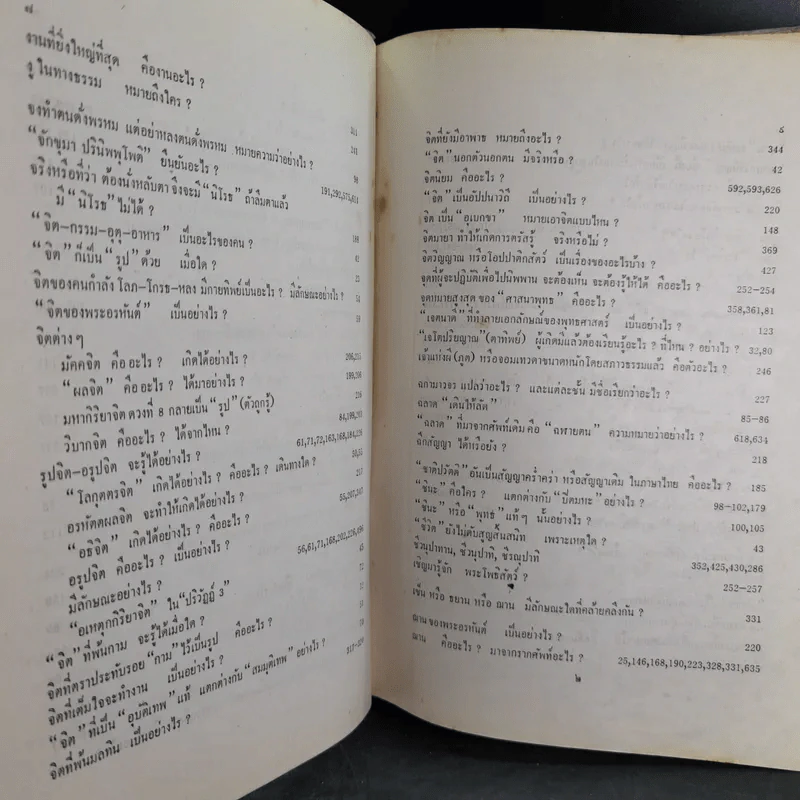 ๘
งานที่ยิ่งใหญ่ที่สุด คืองานอะไร ?
งู ในทางธรรม หมายถึงใคร ?
จงทำตนดั่งพรหม แต่อย่าหลงตนดั่งพรหม หมายความว่าอย่างไร ?
“จักขุมา ปรินิพพุโพติ” ยืนยันอะไร ?
จริงหรือที่ว่า ต้องนั่งหลับตา จึงจะมี “นิโรธ” ถ้าลืมตาแล้ว
มี “นิโรธ” ไม่ได้ ?
“จิต-กรรม-อุตุ-อาหาร” เป็นอะไรของคน ?
“จิต” ก็เป็น “รูป” ด้วย เมื่อใด ?
จิตของคนกำลัง โลภ-โกรธ-หลง มีกายทิพย์เป็นอะไร ? มีลักษณะอย่างไร ?
“จิตของพระอรหันต์” เป็นอย่างไร ?
จิตต่างๆ
มัคคจิต คืออะไร ? เกิดได้อย่างไร ?
“ผลจิต” คืออะไร ? ได้มาอย่างไร ?
มหากิริยาจิต ดวงที่ 8 กลายเป็น “รูป” (ตัวถูกรู้)
วิบากจิต คืออะไร ? ได้จากไหน ?
รูปจิต-อรูปจิต จะรู้ได้อย่างไร ?
“โลกุตตรจิต” เกิดได้อย่างไร ? คืออะไร ? เดินทางใด ?
อรหัตตผลจิต จะทำให้เกิดได้อย่างไร ?
“อธิจิต” เกิดได้อย่างไร ? คืออะไร ?
อรูปจิต คืออะไร ? เป็นอย่างไร ?
มีลักษณะอย่างไร ?
“อเหตุกกิริยาจิต” ใน “ปริวัฏฏ์ 3”
“จิต” ที่พ้นกาม จะรู้ได้เมื่อใด ?
จิตที่ตราประทับรอย “กาม” ไว้เป็นรูป คืออะไร ?
จิตที่เต็มใจจะทำงาน เป็นอย่างไร ?
“จิต” ที่เป็น “อุบัติเทพ” แท้ แตกต่างกับ “สมมุติเทพ” อย่างไร ?
จิตที่พ้นมลทิน เป็นอย่างไร ?
๘
จิตที่ยังมีอาพาธ หมายถึงอะไร ? 344
“จิต” นอกตัวนอกตน มีจริงหรือ ? 42
จิตนิยม คืออะไร ? 592,593,626
“จิต” เป็นอัปปนาวิถี เป็นอย่างไร ? 220
จิต เป็น “อุเบกขา” หมายเอาจิตแบบไหน ? 148
จิตมายา ทำให้เกิดการตรัสรู้ จริงหรือไม่ ? 369
จิตวิญญาณ หรือโอปปาติกสัตว์ เป็นเรื่องของอะไรบ้าง ? 427
จุดที่ผู้จะปฏิบัติเพื่อไปนิพพาน จะต้องเห็น จะต้องรู้ให้ได้ คืออะไร ? 252-254
จุดหมายสูงสุด ของ “ศาสนาพุทธ” คืออะไร ? 358,361,81
“เจตนาดี” ที่ทำลายเอกลักษณ์ของพุทธศาสตร์ เป็นอย่างไร ? 123
“เจโตปริยญาณ” (ตาทิพย์) ผู้เกิดมีแล้วต้องเรียนรู้อะไร ? ที่ไหน ? อย่างไร ? 32,80
เจ้าแห่งผี (ภูต) หรือจอมเทวดาขนาดหนักโดยสภาวธรรมแล้ว คือตัวอะไร ? 246
ฉกามาวจร แปลว่าอะไร ? และแต่ละชั้น มีชื่อเรียกว่าอะไร ? 227
ฉลาด “เดินให้ลัด” 85-86
“ฉลาด” ที่มาจากศัพท์เดิม คือ “ฉฬายตน” ความหมายว่าอย่างไร ? 618,634
ฉีกสัญญา ได้หรือยัง ? 218
“ชาติปรัตติ” อันเป็นสัญญาคร่ำคร่า หรือสัญญาเดิม ในภาษาไทย คืออะไร ? 185
“ชินะ” คือใคร ? แตกต่างกับ “ปิตมหะ” อย่างไร ? 98-102,179
“ชินะ” หรือ “พุทธ” แท้ๆ นั้นอย่างไร ? 100,105
“ชีวิต” ยังไม่ดับสูญสิ้นสนิท เพราะเหตุใด ? 43
ชีวนุปาทาน, ชีวนุปาทิ, ชีรณุปาทิ 352,425,430,286
เชิญมารู้จัก พระโพธิสัตว์ ? 252-257
เซ็น หรือ ธยาน หรือ ฌาน มีลักษณะใดที่คล้ายคลึงกัน ? 331
ฌานของพระอรหันต์ เป็นอย่างไร ? 220
ฌาน คืออะไร ? มาจากรากศัพท์อะไร ? 25,146,168,190,223,328,331,635
๒